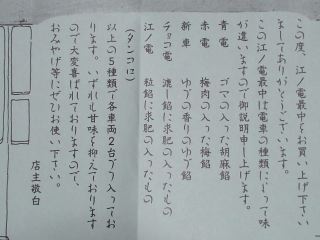 この度、江ノ電最中をお買い上げ下さい
ましてありがとうございます。
この江ノ電最中は電車の種類によって味
が違いますので御説明申し上げます。
青電 ゴマの入った胡麻餡
赤電 梅肉の入った梅餡
新車 ゆづの香りのゆづ餡
チョコ電 漉し餡に求肥の入ったもの
江ノ電 粒餡に求肥の入ったもの
以上の5種類で各車両2台づつ入ってお
ります。いずれも甘味を抑えております
ので大変喜ばれておりますので、
おみやげ等にぜひお使い下さい。
店主敬白